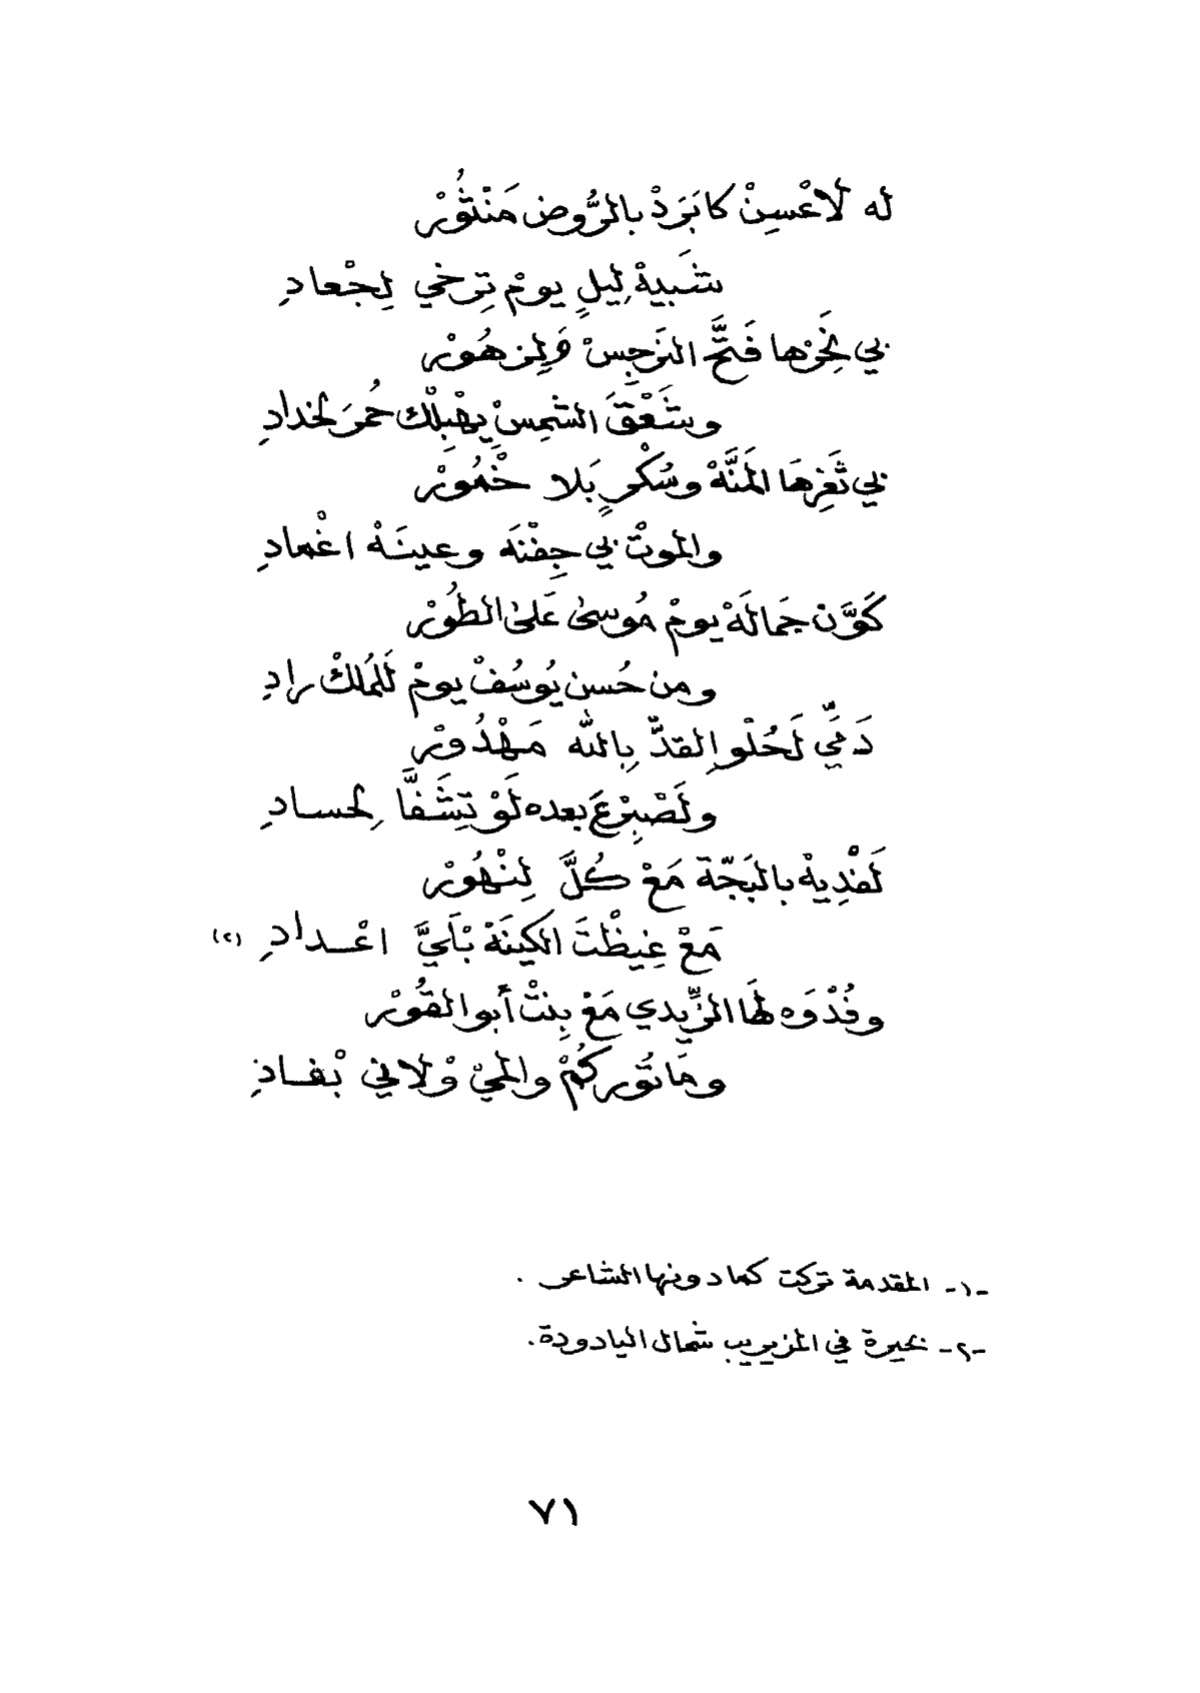 له لَاعْسِنْ كابَرَدْ بالرُّوض مَنْثُورْ
شَبيهْ لِيلٍ يومْ تِرخي لِجْعادِ
بي نَحِرْها فَتَّحْ النَرجِسْ وَلِزهُورْ
وشَعْقَ الشمِسْ يِهْبِلْك حُمرَ لخدادِ
بي ثَغِرهَا المَنَّهْ وسُكْرٍ بَلا خْمُورْ
والموتْ بي جِفْنَه وعينَهْ اغْمادِ
كَوَّن جَمالَهْ يومْ مُوسىٰ عَلىٰ الطُورْ
ومن حُسن يُوسُفْ يومْ لَلمُلكْ رادِ
دَمّي لَحُلْو القدّ بِالله مَهْدُورْ
ولَصْبِرْ عَ بعده لَوْ تِشَفَّا لِحسادِ
لَفْدِيهْ بالبَجّة مَعْ كُلَّ لِنْهُورْ
مَعْ غِيظْتَ الكينَهْ بْلَيَّ اعْدادِ (٢)
وفُدْوَه لَها الزّيدي مَعْ بِنتْ أبو القُورْ
وهَا تُوركُمْ والميْ وْلافي بْفادِ
-١- المقدمة تركت كما دونها الشاعر .
-٢- بحيرة في المزيريب شمال اليادودة.
٧١